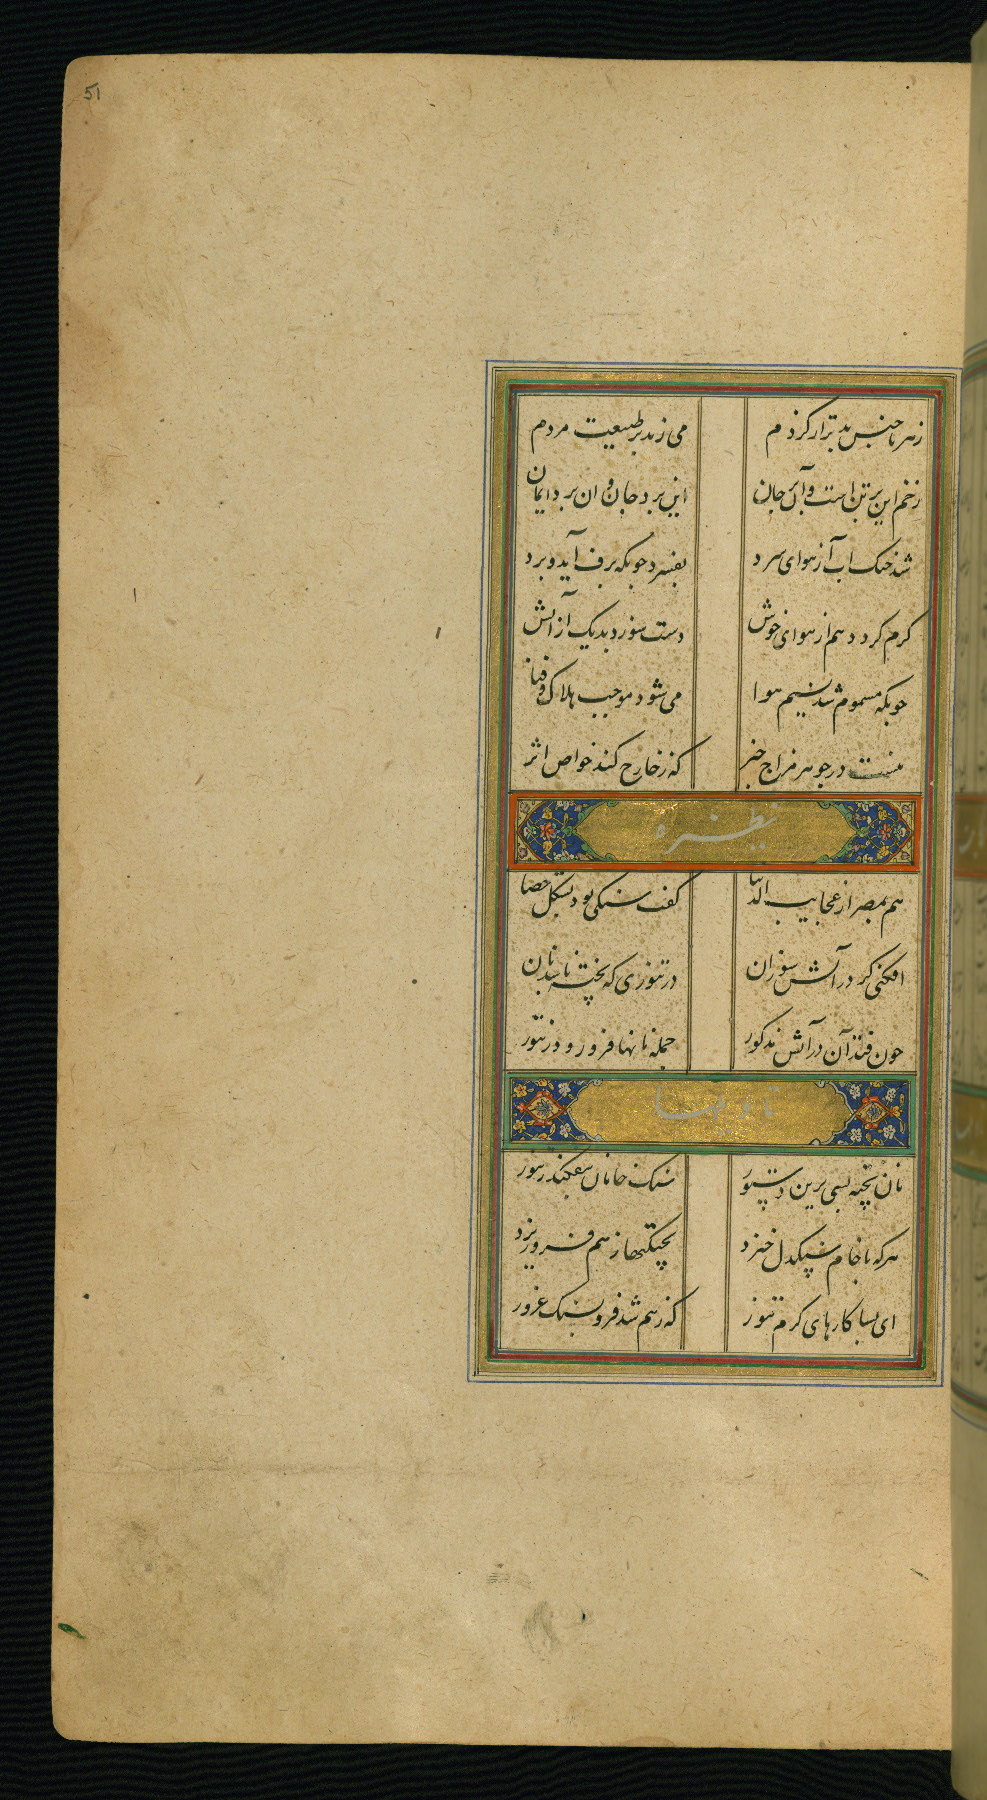 51
زهر ناجنس بدتر از کژدم می زند بر طبیعت مردم
زخم این بر تن است و آن بر جان این برد جان و ان برد ایمان
شد خنک اب از هوای سرد بفسرد چونکه برف آید و برد
کرم کردد هم از هوای خوش دست سوزد بدیک از آتش
چونکه مسموم شد نسیم هوا می شود موجب هلاک و فنا
نیست در جوهر مزاج خبر که ز خارج کند خواص اثر
نظیره
هم بمصر از عجایب الدنیا کفت سنکی بود بشکل حصا
افکنی کر در آتش سوزان در تنوری که پخته باشد نان
چون فتد آن در آتش مذکور جمله نانها فرو رود ز تنور
تاویلها
نان پخته بسی برین دستور سنک خامان بیفکند ز تنور
هر که با خام سنکدل خیزد پختکیها ز هم فرو ریزد
ای بسا کارهای کرم تنور که ز هم شد فرو بسنک غرور